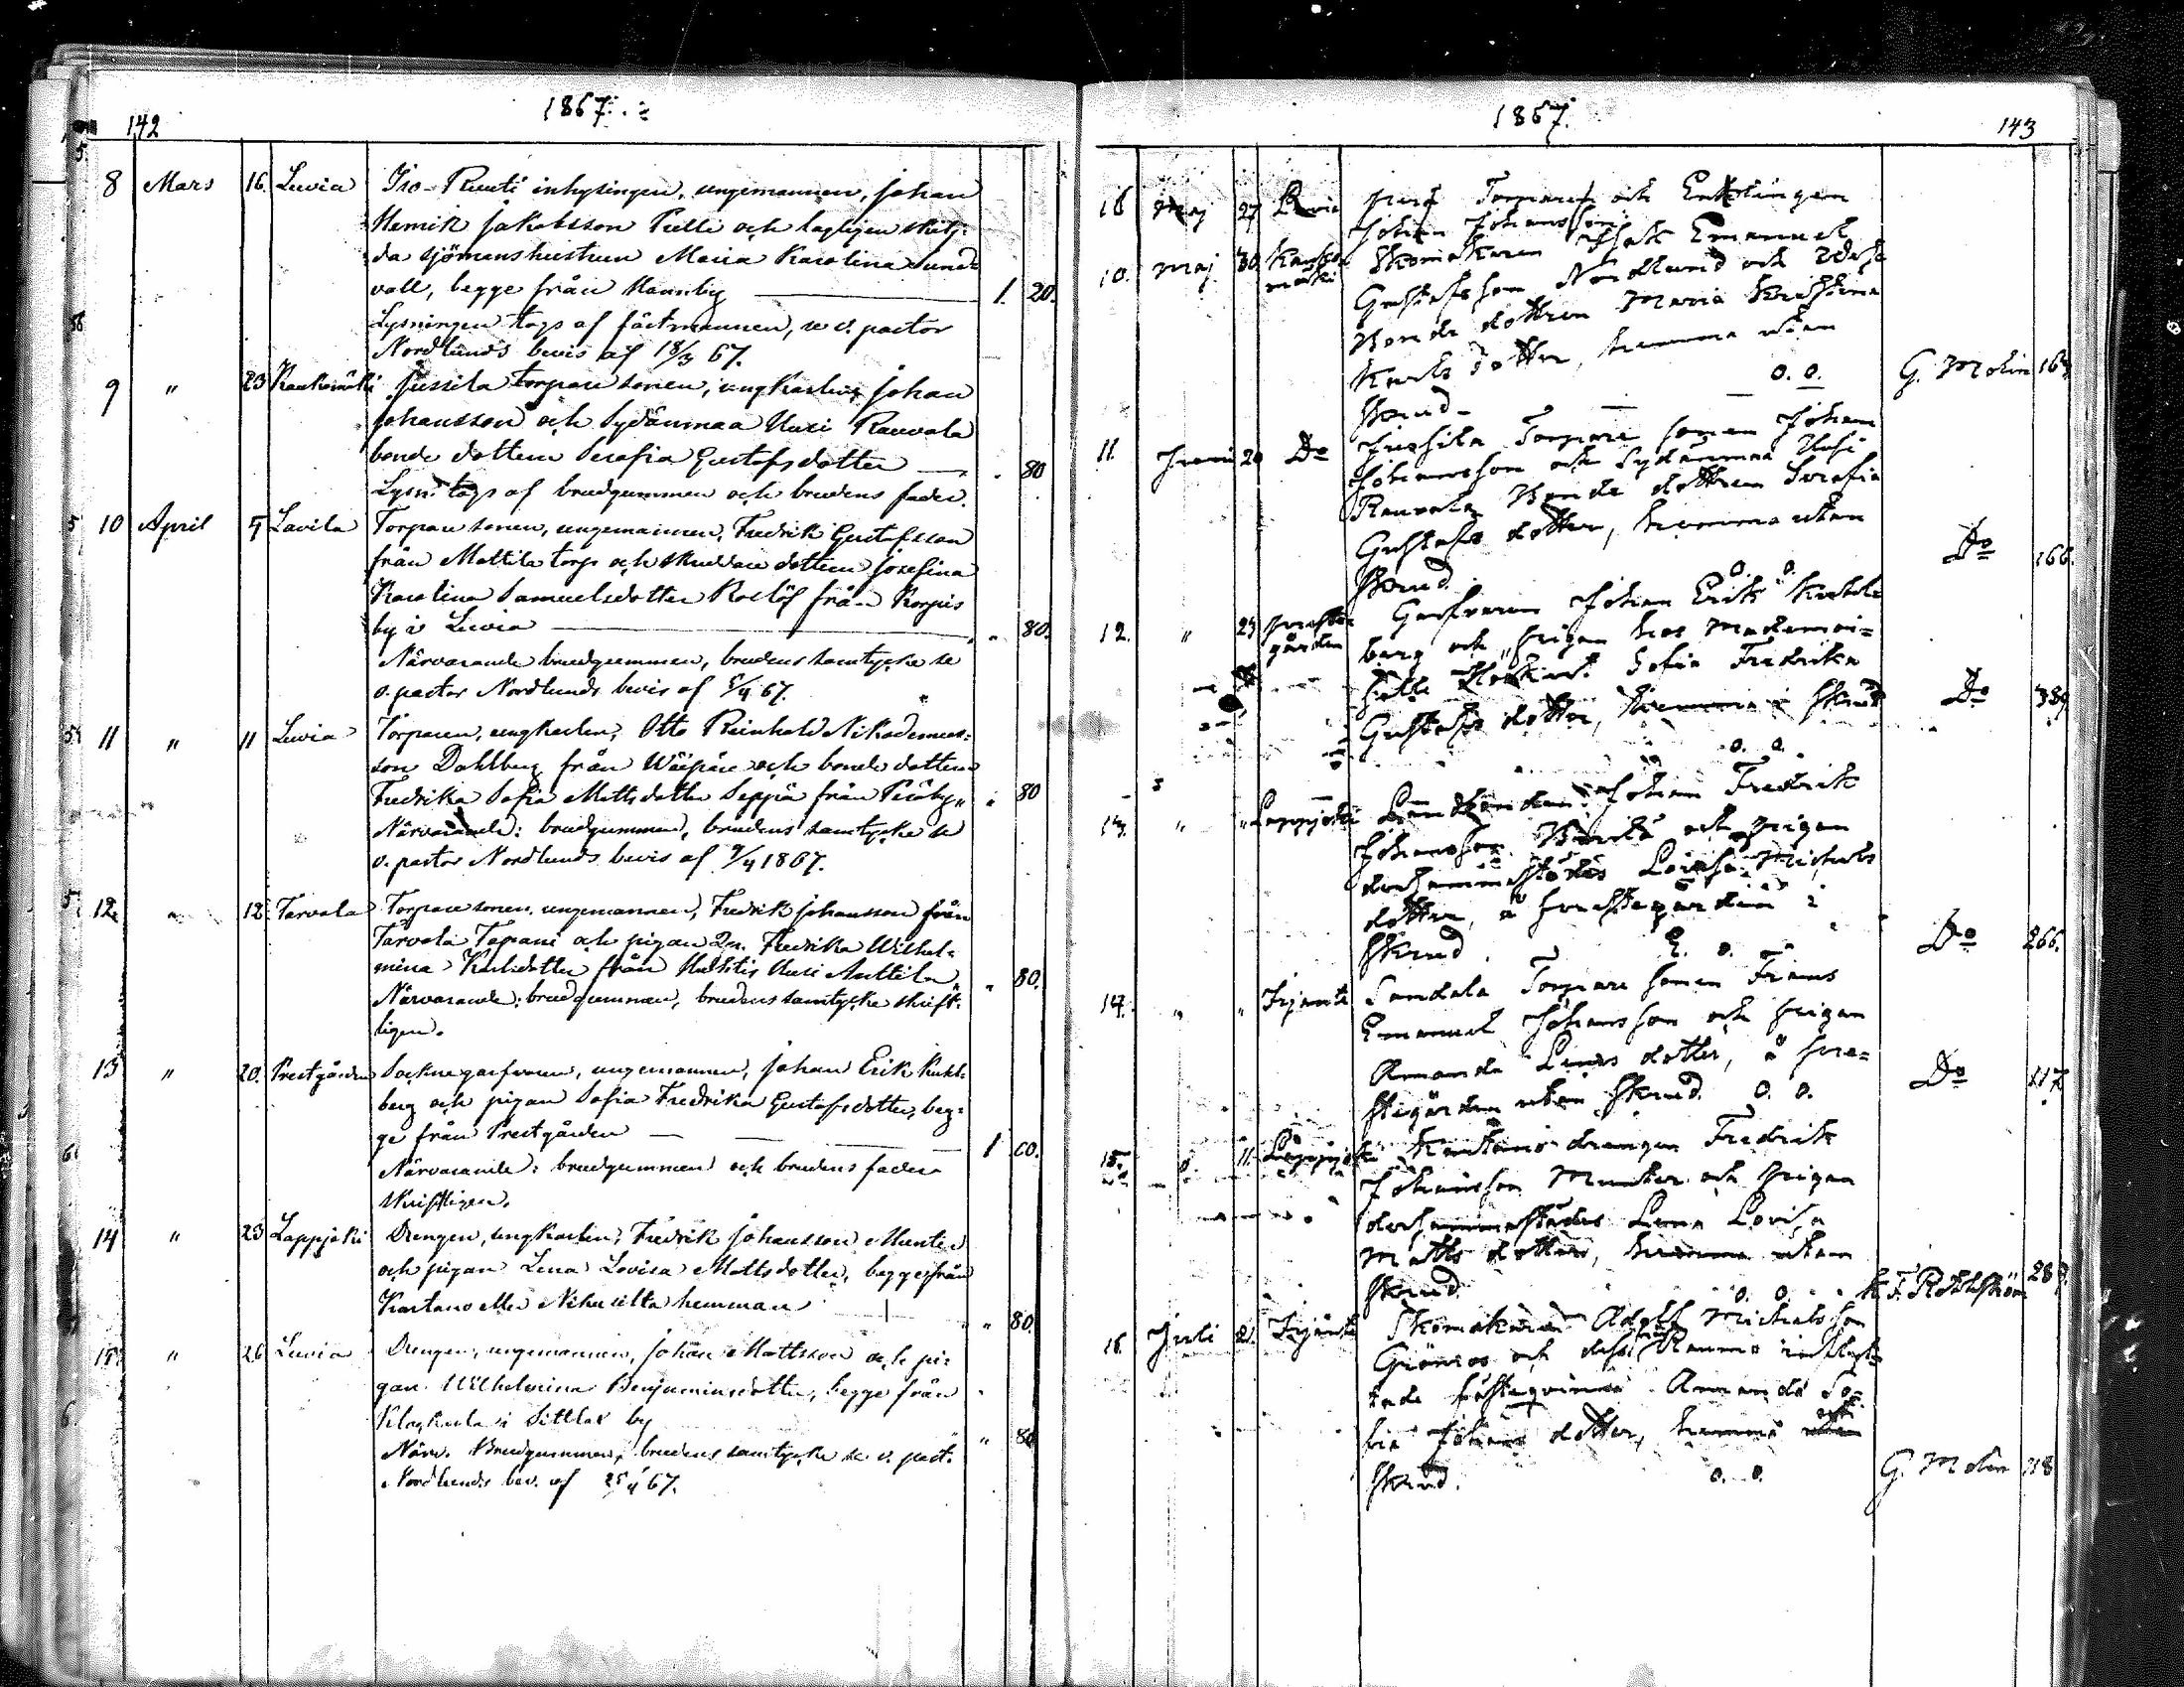 142
1867.
8 Mars 16. Luvia Iso-Ruuti inhysingen, ungemannen, Johan
Henrik Jakobsson Pelli och lagligen skilj-
da sjömanshustrun Maria Karolina Sund-
vall, begge från Hannby 1. 20.
Lysningen togs af fästmannen, se v. pastor
Nordlunds bevis af 18/3 67.
9 " 23 Kaukomäki Jussila torpare sonen, ungkarlen, Johan
Johansson och Sydänmaa Uusi Rauvola
bonde dottern Serafia Gustafsdotter " 80
Lysn. togs af brudgummen och brudens fader.
10 April 5 Lavila Torpare sonen, ungemannen, Fredrik Gustafsson
från Mattila torp och skräddare dottern Josefina
Karolina Samuelsdotter Roslöf från Korpis
by i Luvia " 80.
Närvarande brudgummen, brudens samtycke se
v. pastor Nordlunds bevis af 5/4 67.
11 " 11 Luvia Torparen, ungkarlen, Otto Reinhold Nikodemus-
son Dahlberg från Wäipäre och bonde dottern
Fredrika Sofia Mattsdotter Seppä från Peräby " 80
Närvarande: brudgummen, brudens samtycke se
v. pastor Nordlunds bevis af 9/4 1867.
12. " 12 Tarvola Torpare sonen, ungemannen, Fredrik Johansson från
Tarvola Tapani och pigan Fredrika Wilhel-
mina Karlsdotter från Uusi Anttila " 80.
Närvarande: brudgummen, brudens samtycke skrift-
ligen.
13 " 20. Prestgården Sockne garfvaren, ungemannen, Johan Erik
berg och pigan Sofia Fredrika Gustafsdotter, beg-
ge från Prestgården 1 60.
Närvarande: brudgummen och brudens fader
skriftligen.
14 " 23 Lappjoki Drengen, ungkarlen, Fredrik Johansson Munter
och pigan Lena Lovisa Mattsdotter, begge från
Kartano eller hemman " 80.
15 " 26 Luvia Drengen, ungemannen, Johan Mattsson och pi-
gan Wilhelmina Benjaminsdotter, begge från
i by
Närv. Brudgummen, brudens samtycke se v. past. " 80
Nordlunds bev. af 25/4 67.
1867.
143
Maj 27 Luvia Torparen och Enklingen
Johan Johansson
10. Maj 30 Skomakaren Isak Emanuel
Gustafsson Nordlund och
Bonde dottren Maria Kristina
Karls dotter, hemma utan
skrud. o. o. G. Molin
11. Juni 20 Do Jussila Torpare sonen Johan
Johansson och Sydänmaa Uusi
Rauvola Bonde dottren Serafia
Gustafs dotter, hemma utan
skrud. o. o. Do 166.
12. " 23 Prestgården Garfvaren Johan Erik
berg och pigan hos Mademoi-
selle Sofia Fredrika
Gustafs dotter, hemma i skrud
o. o. Do 389
13. " " Lappjoki Johan Fredrik
Johansson och pigan
derstammastädes Lovisa Michels
dotter, å prestegården i
skrud. E. o. Do 266.
14. " " Irjanto Sandala Torpare sonen Frans
Emanuel Johansson och pigan
Amanda Linds dotter, å pre-
stegården utan skrud. o. o. Do 117
15. " 11. Lappjoki Kartano drengen Fredrik
Johansson Munter och pigan
derstammastädes Lena Lovisa
Matts dotter, hemma utan
skrud. o. o.
16 Juli 21. Irjanto Skomakaren Adolf Michelsson
Grönroos och dess från Raumo inflyt-
tade fästeqvinna Amanda So-
fia Johans dotter, hemma utan
skrud. o. o. G. Molin 118